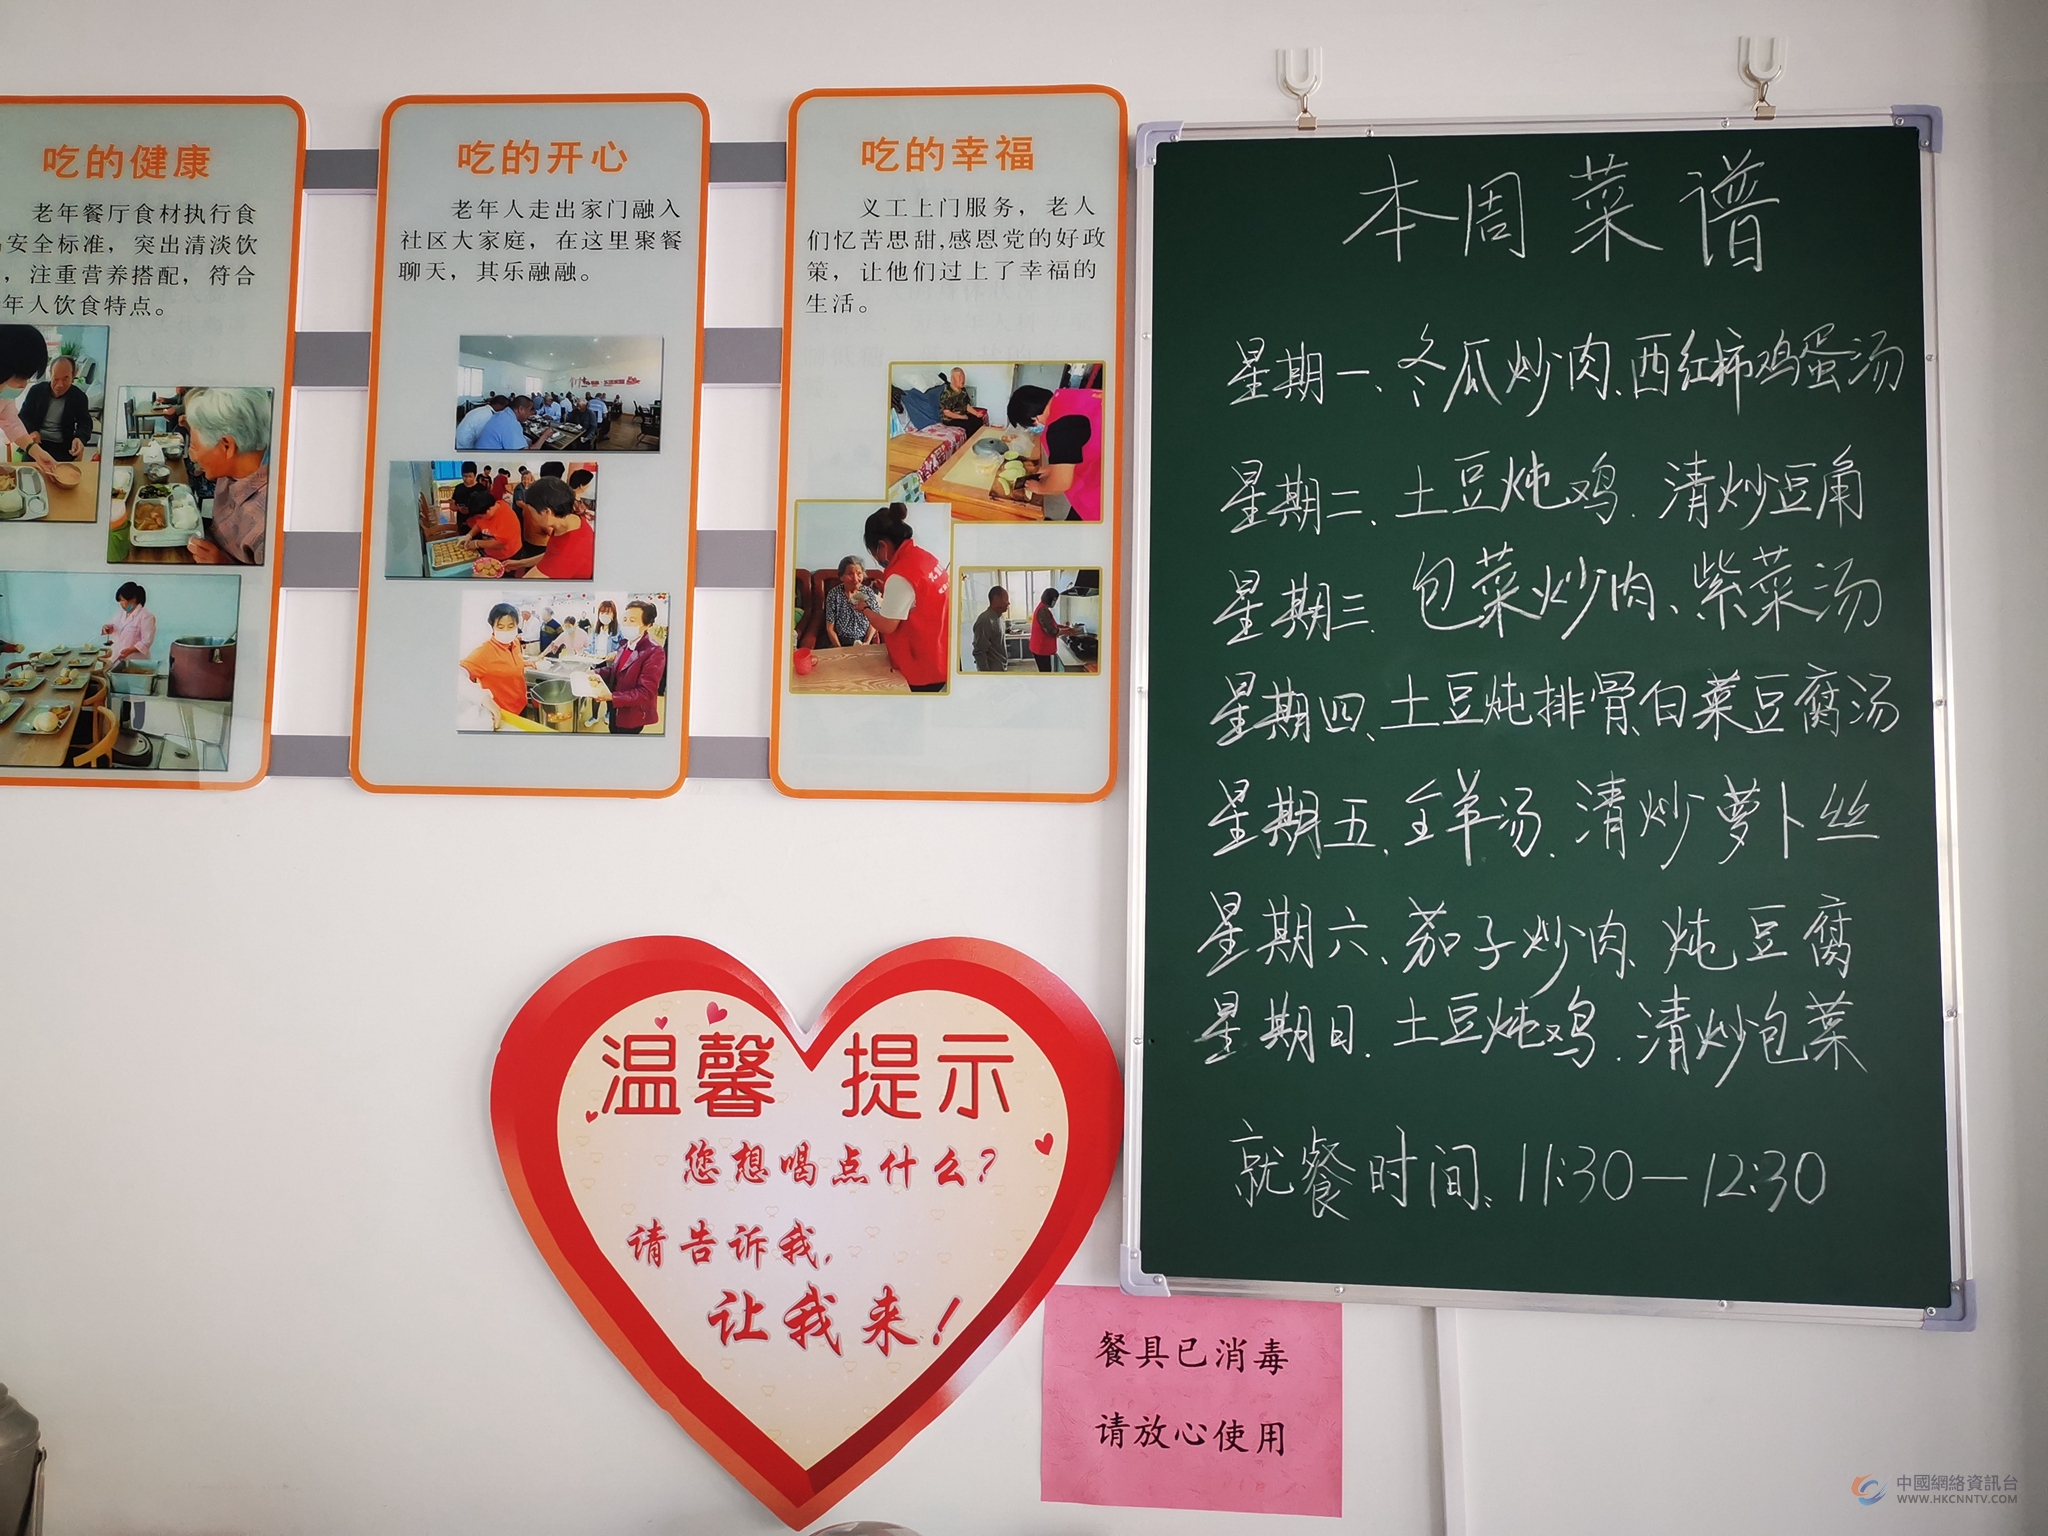 吃的健康
老年餐厅食材执行食
安全标准，突出清淡饮
，注重营养搭配，符合
年人饮食特点。
吃的开心
老年人走出家门融入
社区大家庭，在这里聚餐
聊天，其乐融融。
吃的幸福
义工上门服务，老人
们忆苦思甜,感恩党的好政
策，让他们过上了幸福的
生活。
本周菜谱
星期一、冬瓜炒肉、西红柿鸡蛋汤
星期二、土豆炖鸡、清炒豆角
星期三、包菜炒肉、紫菜汤
星期四、土豆炖排骨、白菜豆腐汤
星期五、全羊汤、清炒萝卜丝
星期六、茄子炒肉、炖豆腐
星期日、土豆炖鸡、清炒包菜
就餐时间：11:30—12:30
温馨 提示
您想喝点什么？
请告诉我，
让我来！
餐具已消毒
请放心使用
中國網絡資訊台
WWW.HKCNNTV.COM